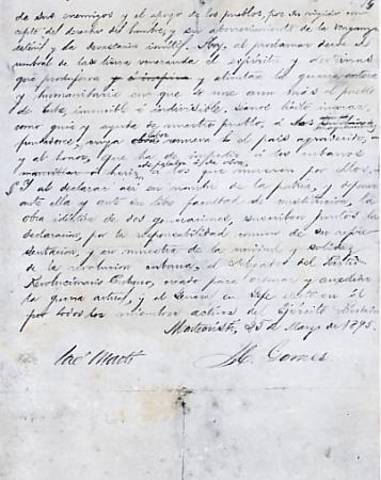 de sus enemigos y el apoyo de los pueblos, por su rígido con-
cepto del derecho del hombre, y su aborrecimiento de la venganza
estéril y la devastación inútil. Hoy, al proclamar desde el
umbral de la tierra veneranda el espíritu y doctrinas
que produjeron y alientan la guerra entera
y humanitaria en que se une aun más el pueblo
de Cuba, invencible é indivisible, séanos lícito invocar,
como guia y ayuda de nuestro pueblo, á los
fundadores, cuya labor renueva el país agradecido,
y al honor, que ha de impedir á los cubanos
herir, de palabra ó de obra, á los que mueren por ellos.
Y al declarar así en nombre de la patria, y deponer
ante ella y ante su libre facultad de constitución, la
obra idéntica de dos generaciones, suscriben juntos la
declaración, por la responsabilidad comun de su repre-
sentación, y en muestra de la unidad y solidez
de la revolución cubana, el Delegado del Partido
Revolucionario Cubano, creado para ordenar y auxiliar
la guerra actual, y el General en Jefe electo en él
por todos los miembros activos del Ejército Libertador.
Montecristi, 25 de Marzo de 1895.
José Martí M. Gomez